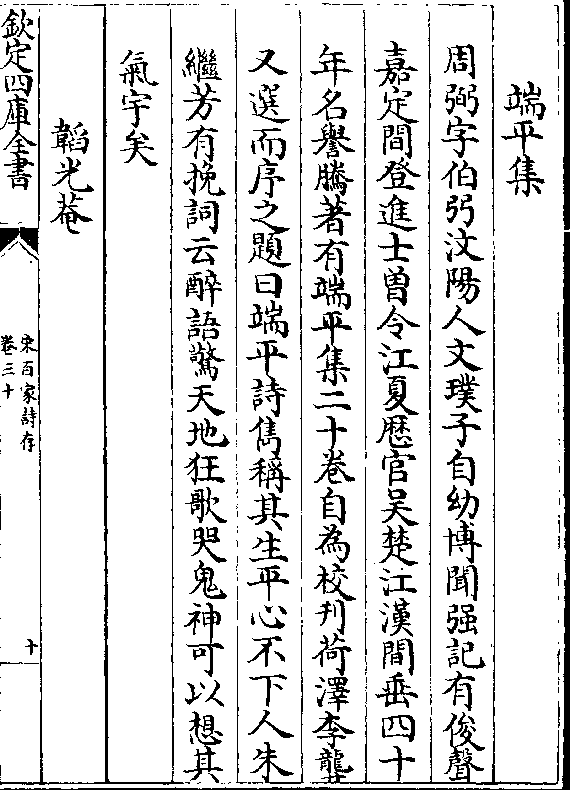 端平集
周弼字伯弜汶陽人文璞子自幼博聞强記有俊聲
嘉定間登進士曽令江夏厯官吴楚江漢間垂四十
年名譽騰著有端平集二十卷自為校刋荷澤李龏
又選而序之題曰端平詩雋稱其生平心不下人朱
繼芳有挽詞云醉語驚天地狂歌哭鬼神可以想其
氣宇矣
韜光菴
欽定四庫全書
宋百家詩存
卷三十
十